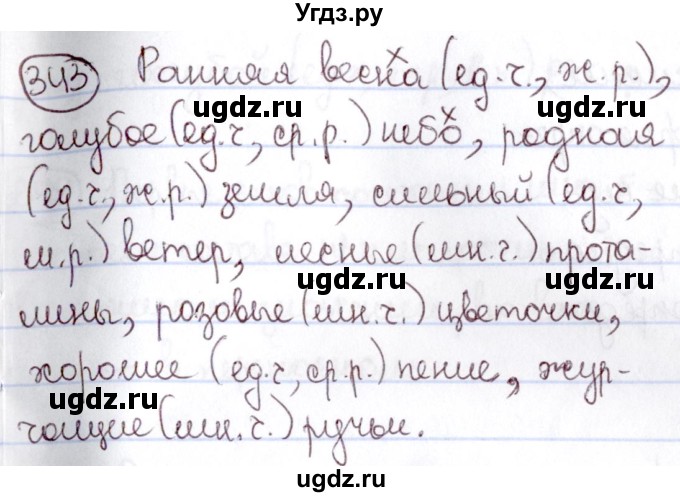 Угдз.ру
343 Ранняя весна (ед.ч., ж.р.),
голубое (ед.ч, ср.р.) небо, родная
(ед.ч., ж.р.) земля, сильный (ед.ч,
м.р.) ветер, лесные (мн.ч.) прота-
лины, розовые (мн.ч.) цветочки,
хорошее (ед.ч, ср.р.) пение, жур-
чащие (мн.ч.) ручьи.
ugdz.ru
ugdz.ru
ugdz.ru
ugdz.ru
ugdz.ru
ugdz.ru
ugdz.ru
ugdz.ru
ugdz.ru
ugdz.ru